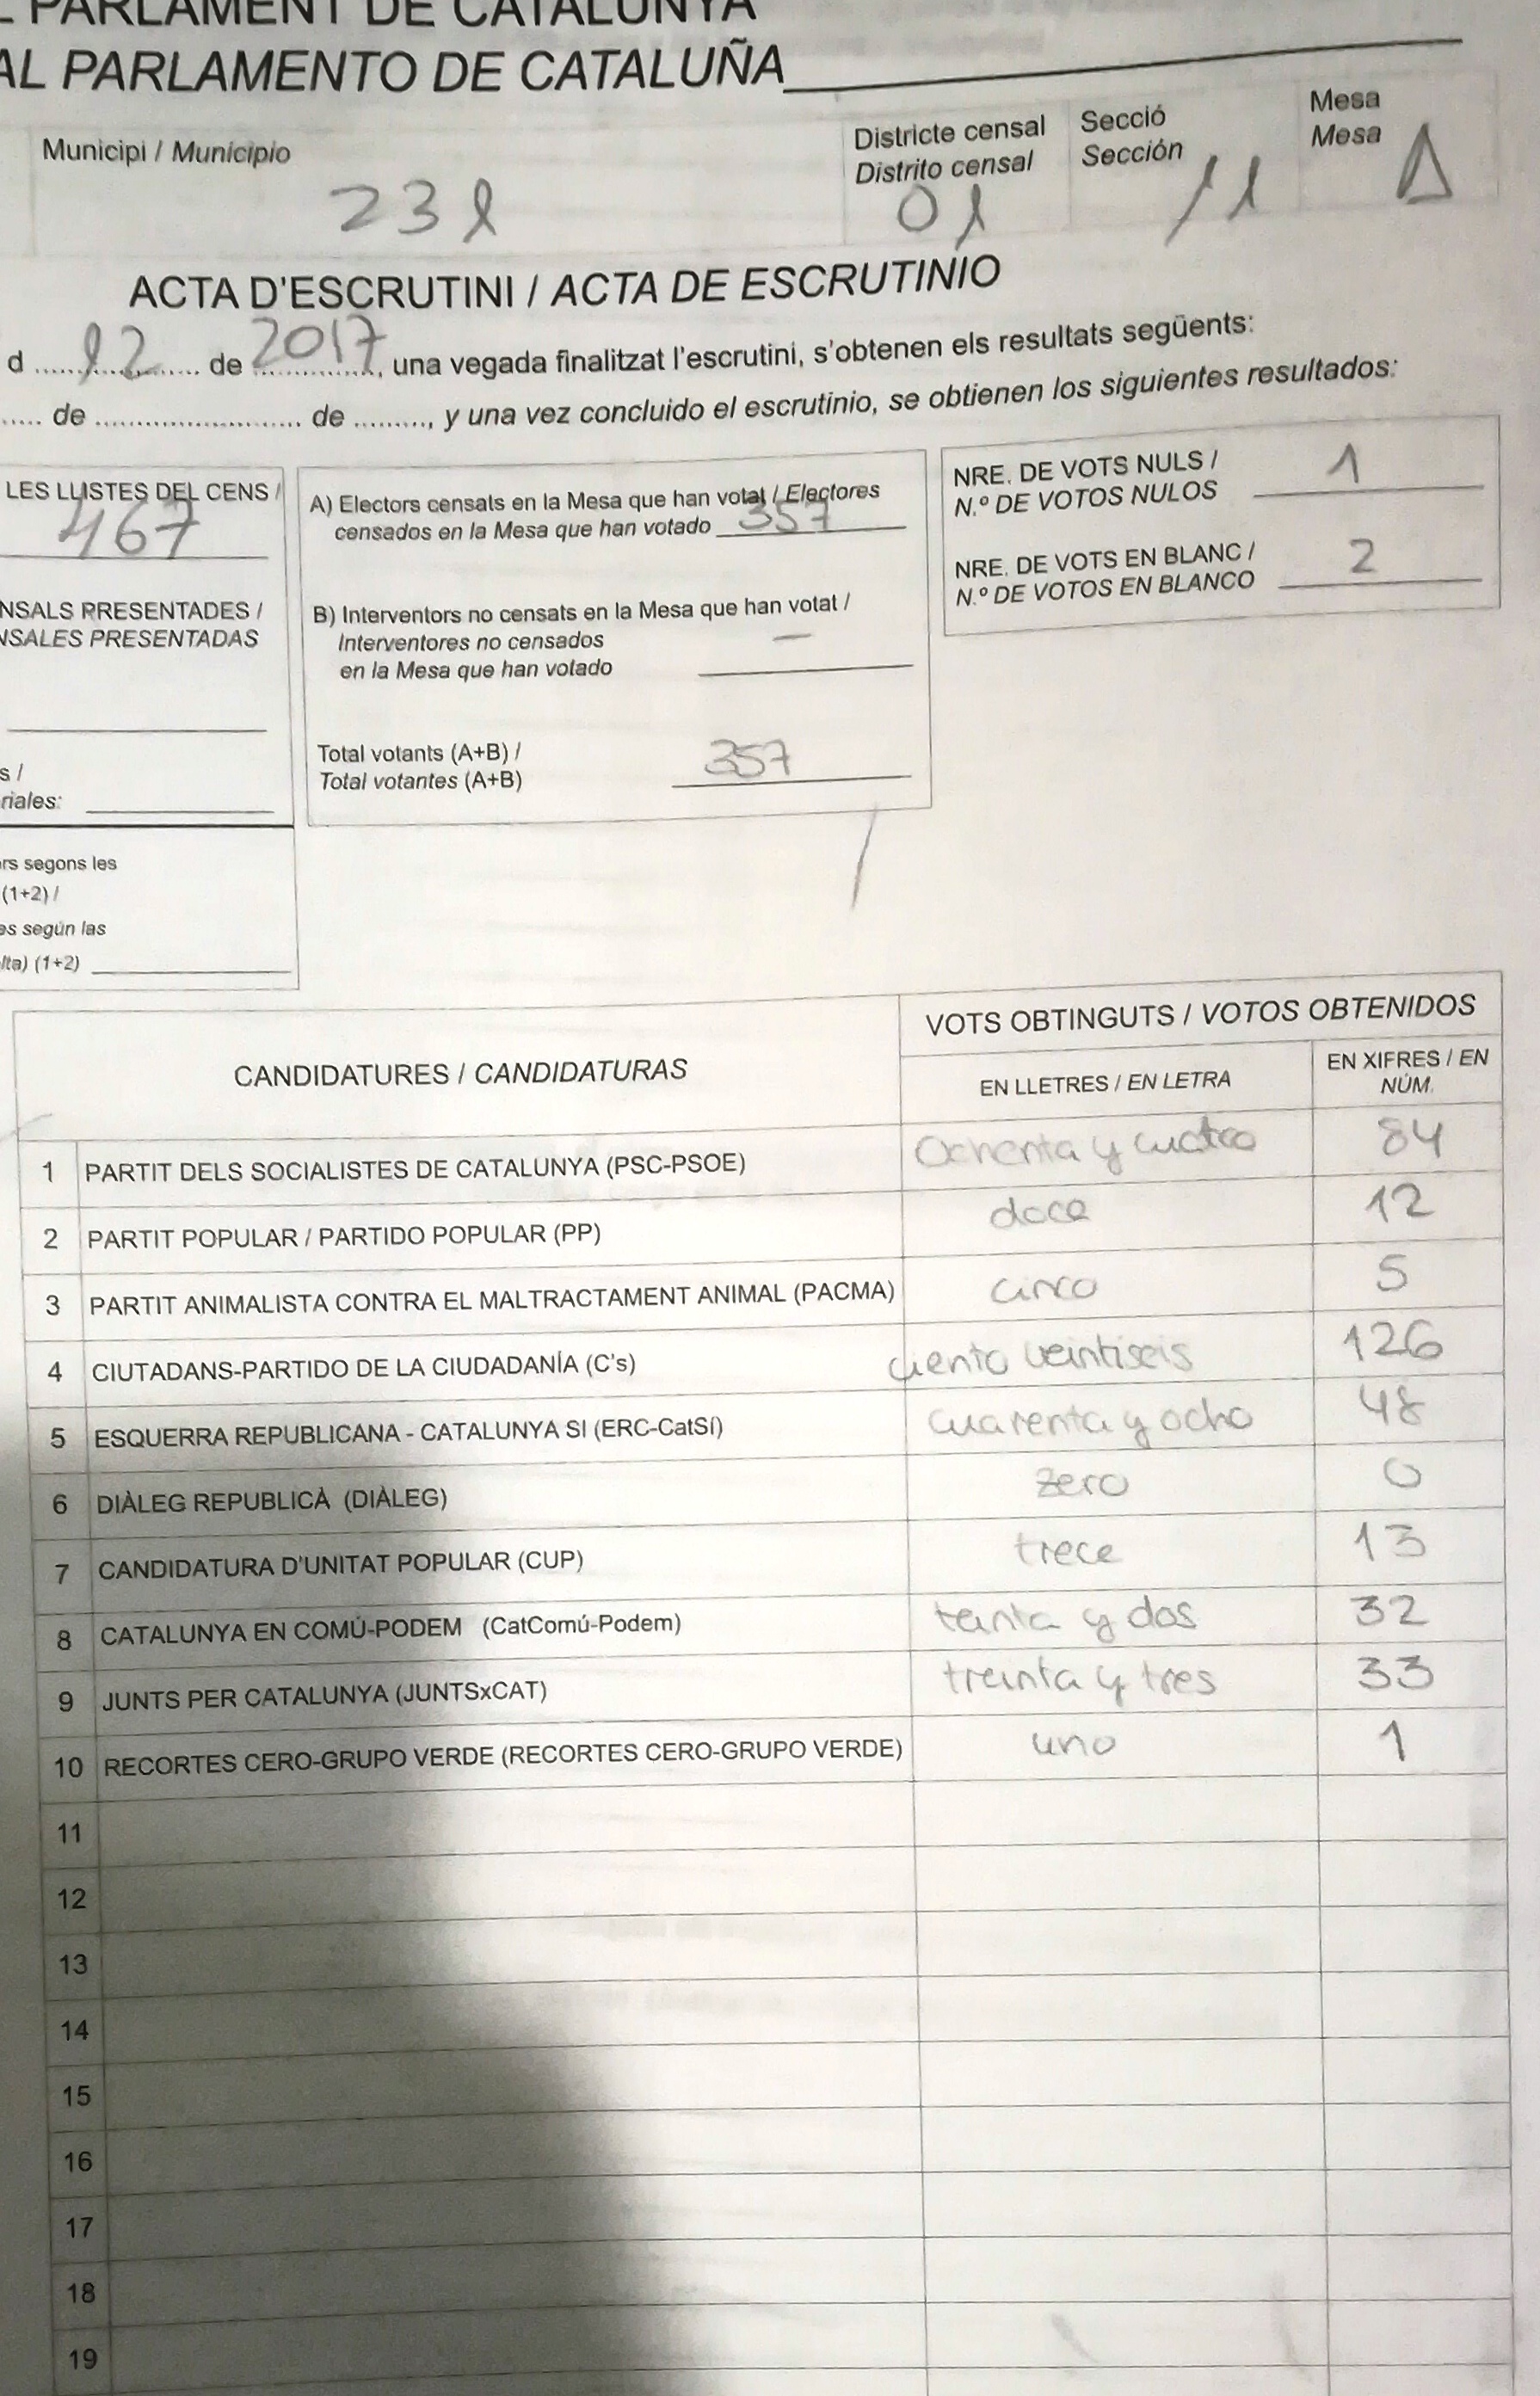 L PARLAMENT DE CATALUNYA
AL PARLAMENTO DE CATALUÑA
Municipi / Municipio
231
Districte censal
Distrito censal
01
Secció
Sección
11
Mesa
Mesa
A
ACTA D'ESCRUTINI / ACTA DE ESCRUTINIO
d 12 de 2017, una vegada finalitzat l'escrutini, s'obtenen els resultats següents:
de de , y una vez concluido el escrutinio, se obtienen los siguientes resultados:
LES LLISTES DEL CENS /
467
NSALS PRESENTADES /
NSALES PRESENTADAS
s /
riales:
rs segons les
(1+2) /
es según las
lta) (1+2)
A) Electors censats en la Mesa que han votat / Electores
censados en la Mesa que han votado 357
B) Interventors no censats en la Mesa que han votat /
Interventores no censados —
en la Mesa que han votado
Total votants (A+B) /
Total votantes (A+B) 357
NRE. DE VOTS NULS /
N.º DE VOTOS NULOS 1
NRE. DE VOTS EN BLANC /
N.º DE VOTOS EN BLANCO 2
CANDIDATURES / CANDIDATURAS
VOTS OBTINGUTS / VOTOS OBTENIDOS
EN LLETRES / EN LETRA
EN XIFRES / EN
NÚM.
1 PARTIT DELS SOCIALISTES DE CATALUNYA (PSC-PSOE) Ochenta y cuatro 84
2 PARTIT POPULAR / PARTIDO POPULAR (PP) doce 12
3 PARTIT ANIMALISTA CONTRA EL MALTRACTAMENT ANIMAL (PACMA) cinco 5
4 CIUTADANS-PARTIDO DE LA CIUDADANÍA (C's) ciento veintiseis 126
5 ESQUERRA REPUBLICANA - CATALUNYA SI (ERC-CatSí) cuarenta y ocho 48
6 DIÀLEG REPUBLICÀ (DIÀLEG) zero 0
7 CANDIDATURA D'UNITAT POPULAR (CUP) trece 13
8 CATALUNYA EN COMÚ-PODEM (CatComú-Podem) teinta y dos 32
9 JUNTS PER CATALUNYA (JUNTSxCAT) treinta y tres 33
10 RECORTES CERO-GRUPO VERDE (RECORTES CERO-GRUPO VERDE) uno 1
11
12
13
14
15
16
17
18
19